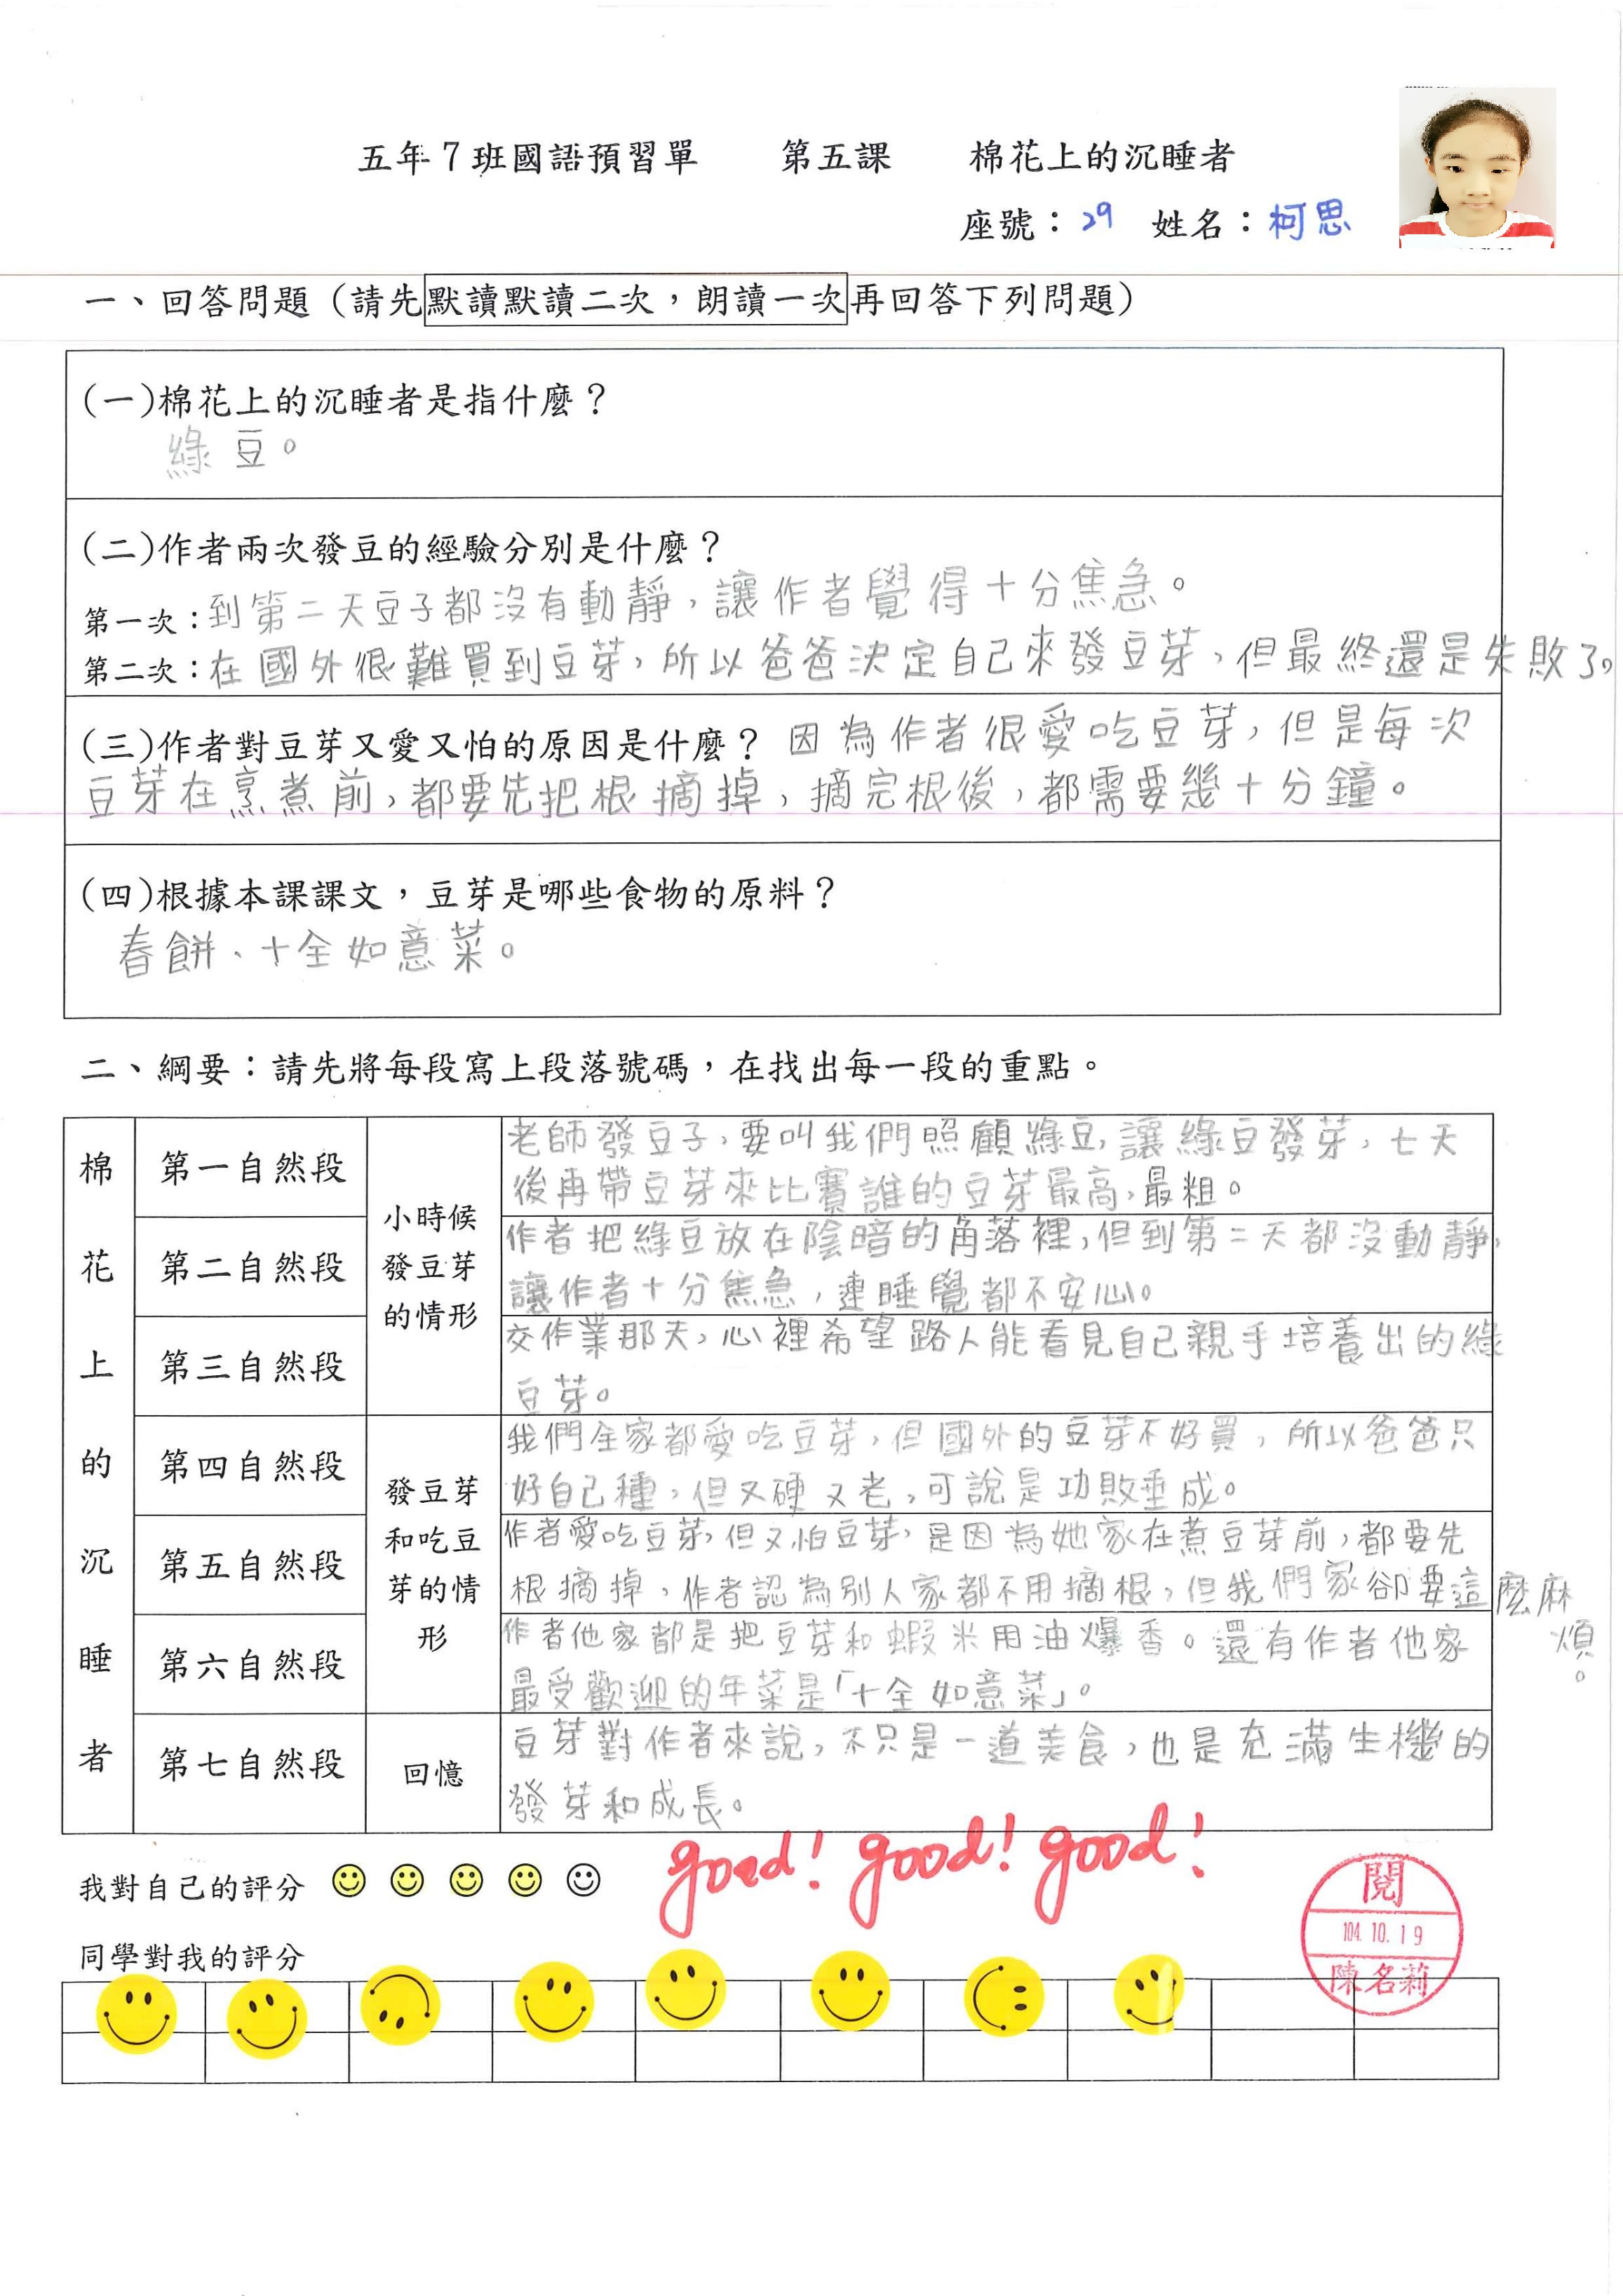 五年7班國語預習單 第五課 棉花上的沉睡者
座號：29 姓名：柯思
一、回答問題（請先默讀默讀二次，朗讀一次再回答下列問題）
(一)棉花上的沉睡者是指什麼？
綠豆。
(二)作者兩次發豆的經驗分別是什麼？
第一次：到第二天豆子都沒有動靜，讓作者覺得十分焦急。
第二次：在國外很難買到豆芽，所以爸爸決定自己來發豆芽，但最終還是失敗了。
(三)作者對豆芽又愛又怕的原因是什麼？因為作者很愛吃豆芽，但是每次
豆芽在烹煮前，都要先把根摘掉，摘完根後，都需要幾十分鐘。
(四)根據本課課文，豆芽是哪些食物的原料？
春餅、十全如意菜。
二、綱要：請先將每段寫上段落號碼，在找出每一段的重點。
棉花上的沉睡者
小時候
發豆芽
的情形
第一自然段
老師發豆子，要叫我們照顧綠豆，讓綠豆發芽，七天
後再帶豆芽來比賽誰的豆芽最高，最粗。
第二自然段
作者把綠豆放在陰暗的角落裡，但到第二天都沒動靜，
讓作者十分焦急，連睡覺都不安心。
第三自然段
交作業那天，心裡希望路人能看見自己親手培養出的綠
豆芽。
發豆芽
和吃豆
芽的情
形
第四自然段
我們全家都愛吃豆芽，但國外的豆芽不好買，所以爸爸只
好自己種，但又硬又老，可說是功敗垂成。
第五自然段
作者愛吃豆芽，但又怕豆芽，是因為她家在煮豆芽前，都要先
根摘掉，作者認為別人家都不用摘根，但我們家卻要這麼麻
煩。
第六自然段
作者他家都是把豆芽和蝦米用油爆香。還有作者他家
最受歡迎的年菜是「十全如意菜」。
第七自然段
回憶
豆芽對作者來說，不只是一道美食，也是充滿生機的
發芽和成長。
我對自己的評分
good! good! good!
同學對我的評分
閱
104.10.19
陳名莉